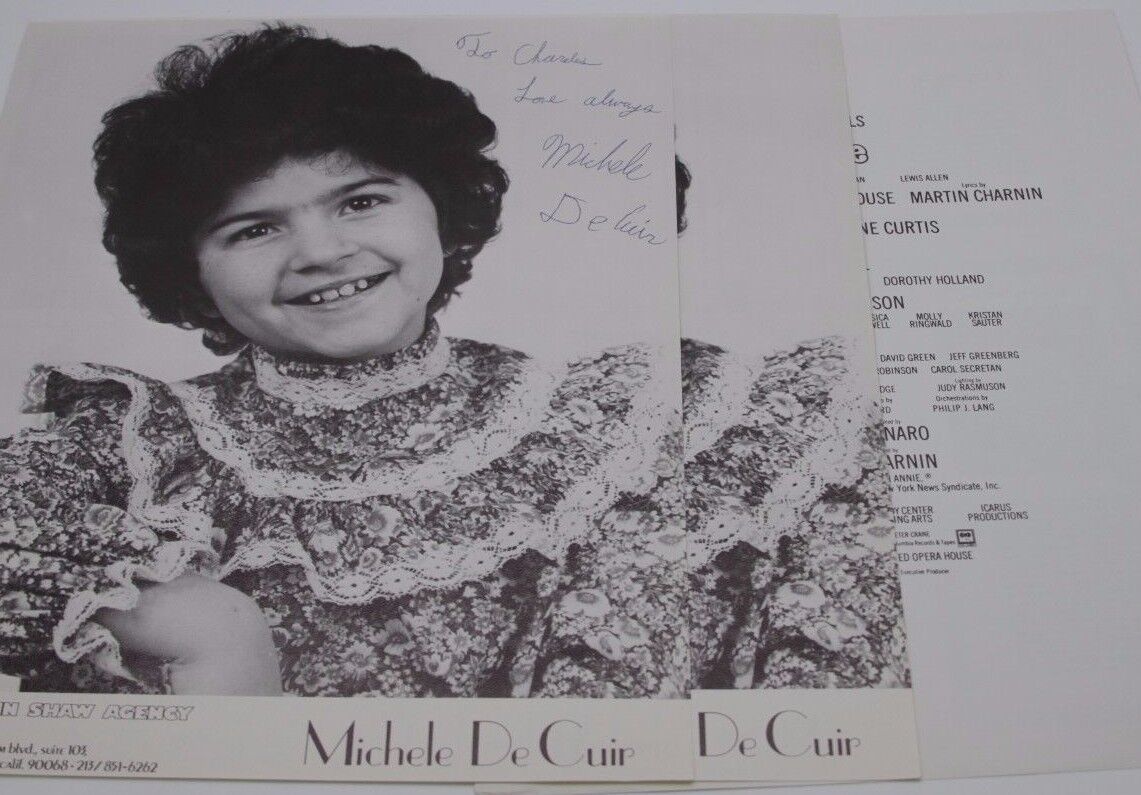 To Charles
Love always
Michele
De Cuir
N SHAW AGENCY
m blvd., suite 103
calif. 90068 - 213/851-6262
Michele De Cuir
De Cuir
LS
LEWIS ALLEN
Lyrics by
OUSE MARTIN CHARNIN
NE CURTIS
DOROTHY HOLLAND
SON
SICA MOLLY KRISTAN
WELL RINGWALD SAUTER
DAVID GREEN JEFF GREENBERG
ROBINSON CAROL SECRETAN
Lighting by
DGE JUDY RASMUSON
Orchestrations by
RD PHILIP J. LANG
NARO
ARNIN
ANNIE.®
York News Syndicate, Inc.
Y CENTER ICARUS
ING ARTS PRODUCTIONS
ETER CRANE
umbia Records & Tapes
ED OPERA HOUSE
Executive Producer